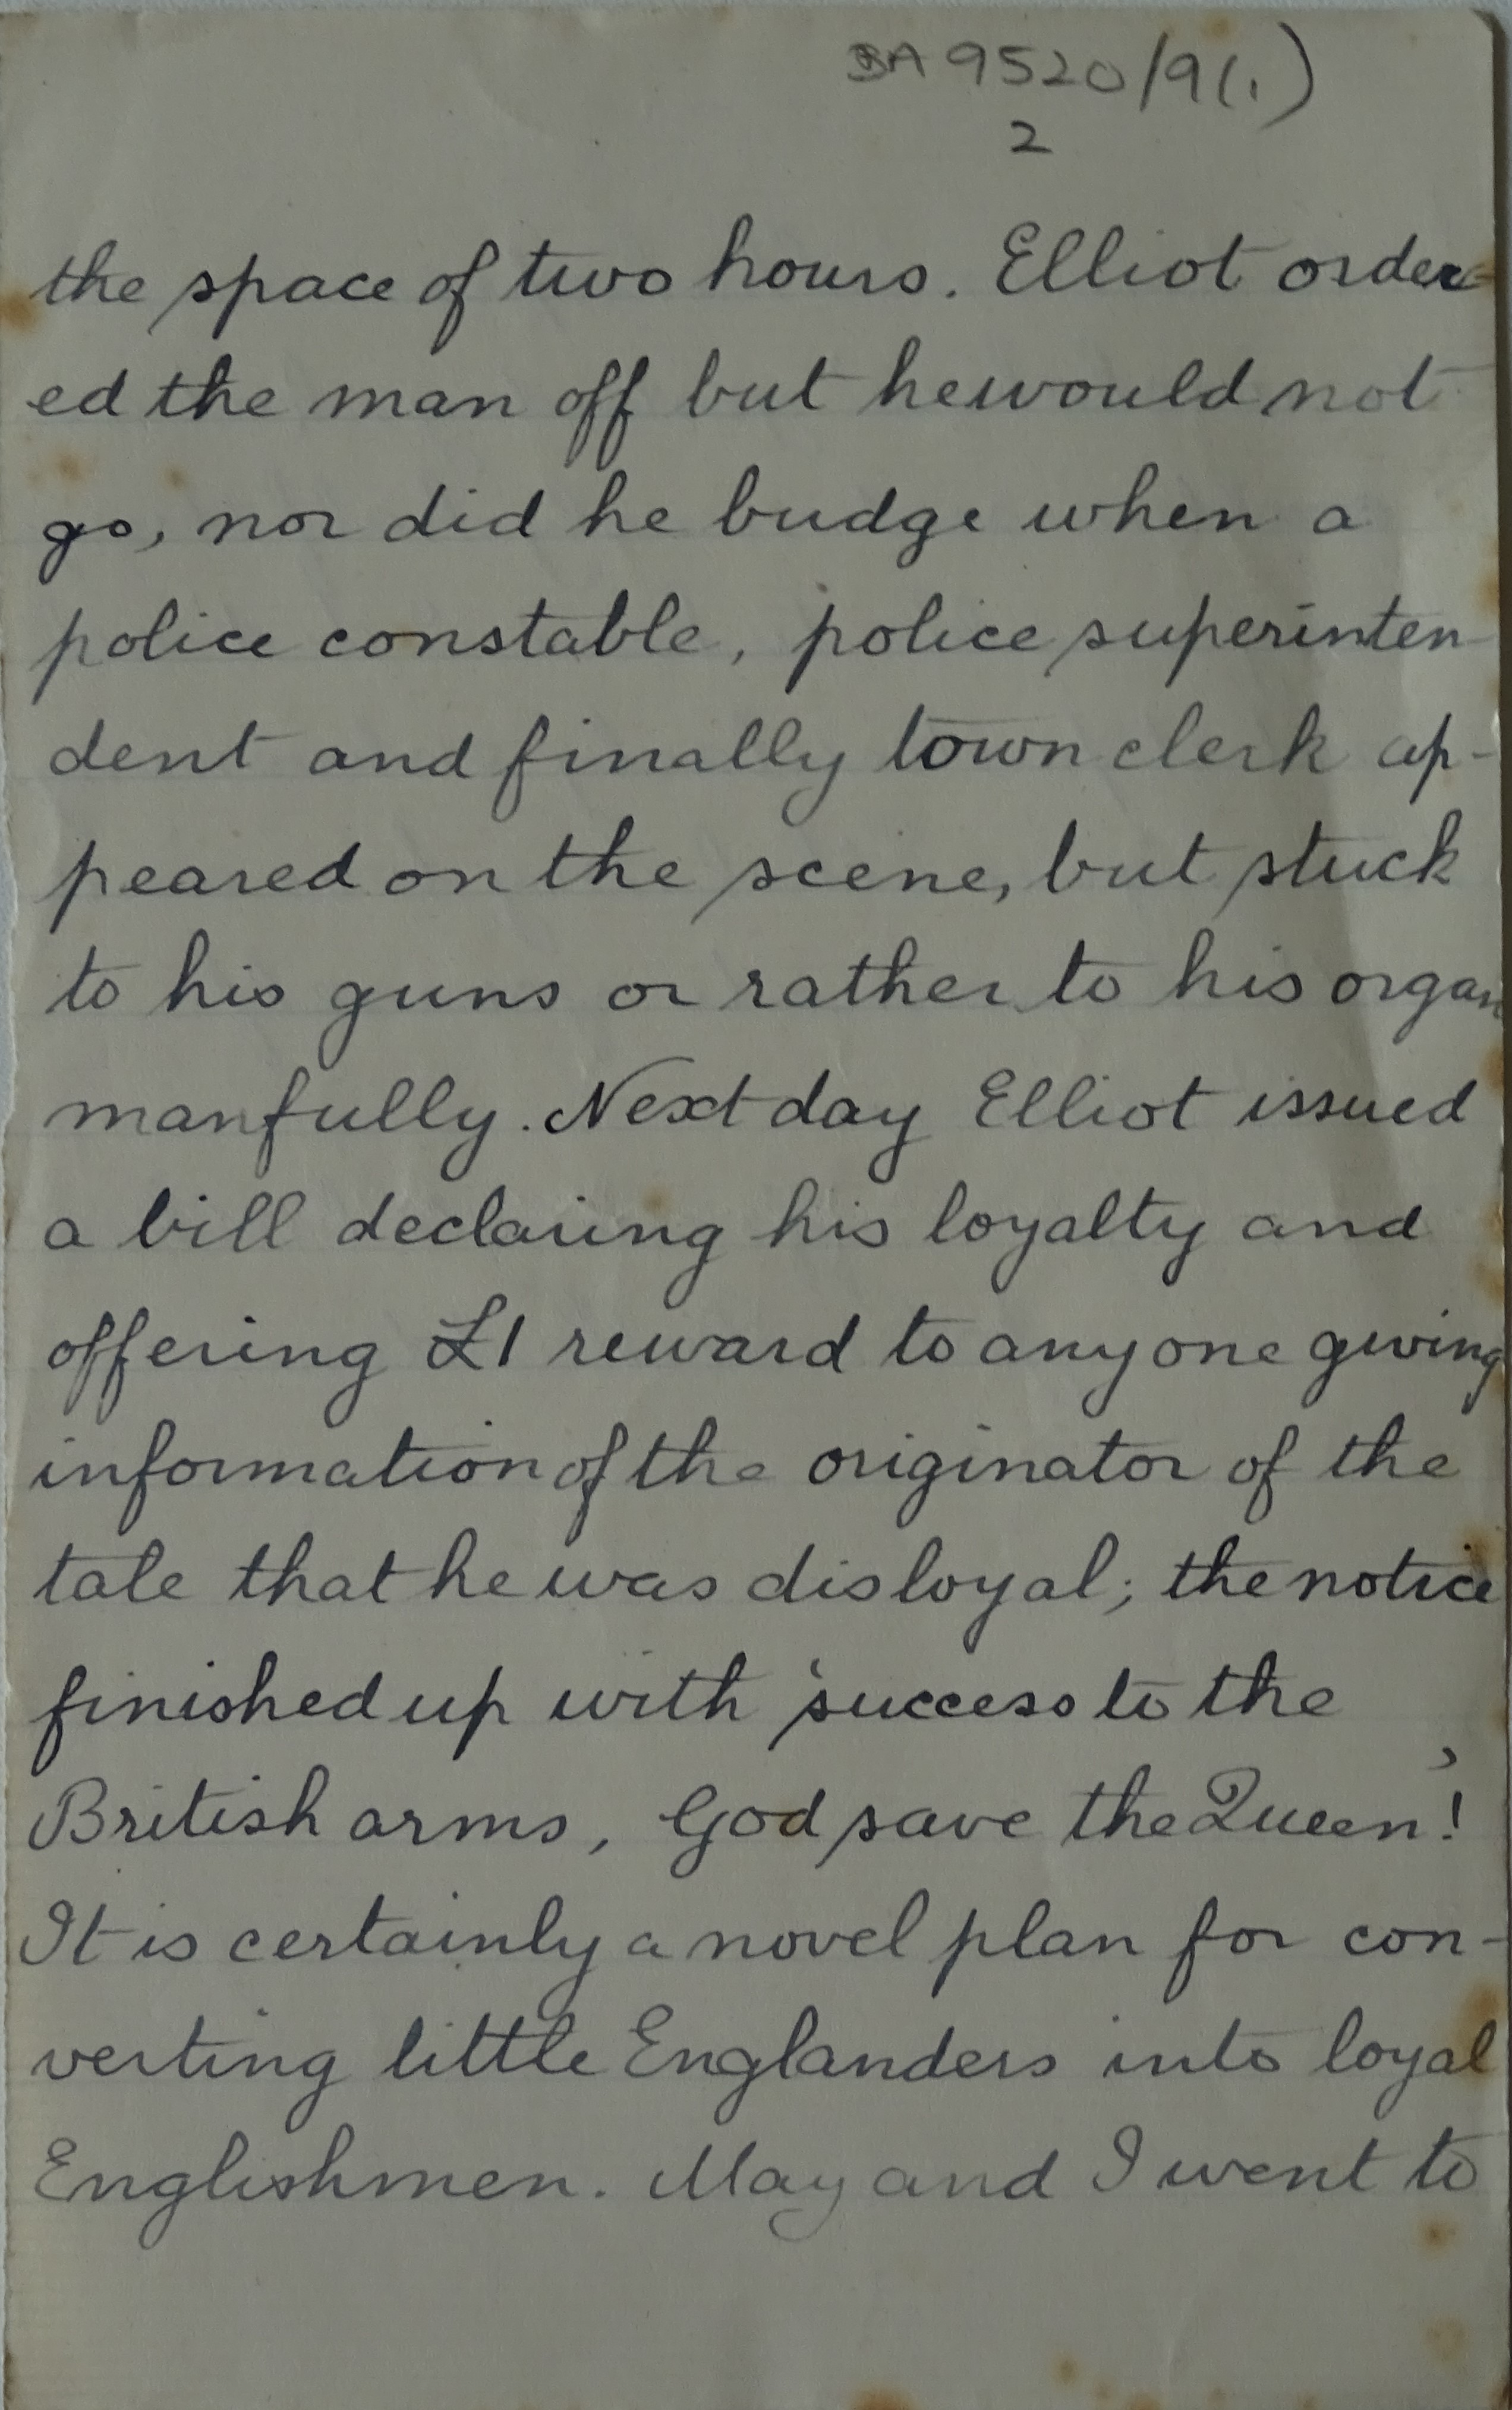 BA 9520/9(1)
2
the space of two hours. Elliot order-
ed the man off but he would not
go, nor did he budge when a
police constable, police superinten-
dent and finally town clerk ap-
peared on the scene, but stuck
to his guns or rather to his organ
manfully. Next day Elliot issued
a bill declaring his loyalty and
offering £1 reward to anyone giving
information of the originator of the
tale that he was disloyal; the notice
finished up with 'success to the
British arms, God save the Queen'!
It is certainly a novel plan for con-
verting little Englanders into loyal
Englishmen. May and I went to